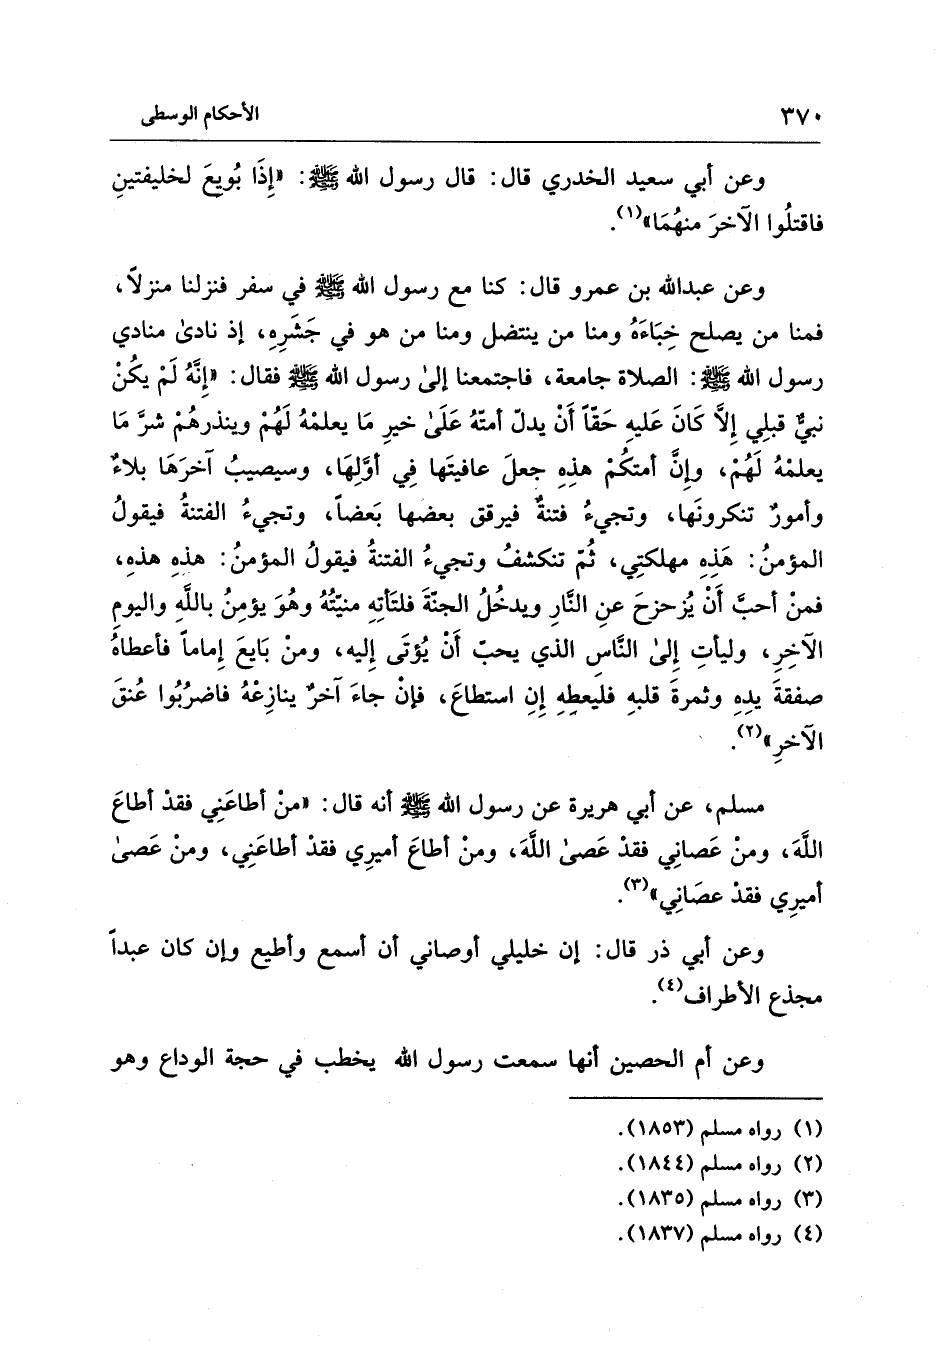 ٣٧٠ الأحكام الوسطى
وعن أبي سعيد الخدري قال: قال رسول الله ﷺ: «إِذَا بُويِعَ لخليفتينِ
فاقتلُوا الآخرَ منهُمَا»(١).
وعن عبدالله بن عمرو قال: كنا مع رسول الله ﷺ في سفر فنزلنا منزلاً،
فمنا من يصلح خِبَاءَهُ ومنا من ينتضل ومنا من هو في جَشَرِهِ، إذ نادىٰ منادي
رسول الله ﷺ: الصلاة جامعة، فاجتمعنا إلىٰ رسول الله ﷺ فقال: «إِنَّهُ لَمْ يكُنْ
نبيٌّ قبلِي إِلاَّ كَانَ عَليهِ حَقّاً أَنْ يدلّ أمتَهُ عَلَىٰ خيرِ مَا يعلمْهُ لَهُمْ وينذرهُمْ شرَّ مَا
يعلمْهُ لَهُمْ، وإِنَّ أمتكُمْ هذِهِ جعلَ عافيتَها فِي أوَّلِهَا، وسيصيبُ آخرَهَا بلاءٌ
وأمورٌ تنكرونَها، وتجيءُ فتنةٌ فيرقق بعضها بَعضاً، وتجيءُ الفتنةُ فيقولُ
المؤمنُ: هَذِهِ مهلكتِي، ثُمّ تنكشفُ وتجيءُ الفتنةُ فيقولُ المؤمنُ: هذهِ هذهِ،
فمنْ أحبَّ أَنْ يُزحزحَ عنِ النَّارِ ويدخُلُ الجنّةَ فلتَأتِهِ منيّتُهُ وهُوَ يؤمِنُ باللَّهِ واليومِ
الآخِرِ، وليأتِ إِلىٰ النَّاسِ الذي يحبّ أَنْ يُؤتَى إليه، ومنْ بَايعَ إماماً فأعطاهُ
صفقةَ يدِهِ وثمرةَ قلبهِ فليعطِهِ إِنِ استطاعَ، فإنْ جاءَ آخرٌ ينازِعْهُ فاضرُبُوا عُنقَ
الآخرِ»(٢).
مسلم، عن أبي هريرة عن رسول الله ﷺ أنه قال: «منْ أطاعَنِي فقدْ أطاعَ
اللَّهَ، ومنْ عَصانِي فقدْ عَصىٰ اللَّهَ، ومنْ أطاعَ أميرِي فقدْ أطاعَنِي، ومنْ عَصىٰ
أميرِي فقدْ عصَانِي»(٣).
وعن أبي ذر قال: إن خليلي أوصاني أن أسمع وأطيع وإن كان عبداً
مجذع الأطراف(٤).
وعن أم الحصين أنها سمعت رسول الله يخطب في حجة الوداع وهو
(١) رواه مسلم (١٨٥٣).
(٢) رواه مسلم (١٨٤٤).
(٣) رواه مسلم (١٨٣٥).
(٤) رواه مسلم (١٨٣٧).